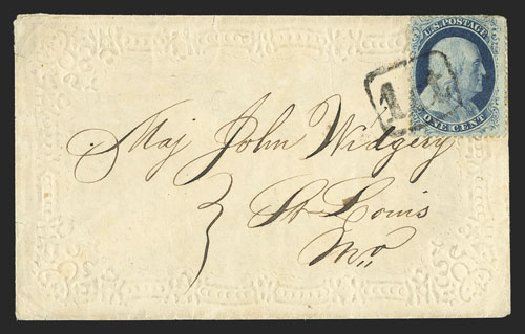 U.S. POSTAGE
ONE CENT
Maj John Widgery
3
St. Louis
Mo.